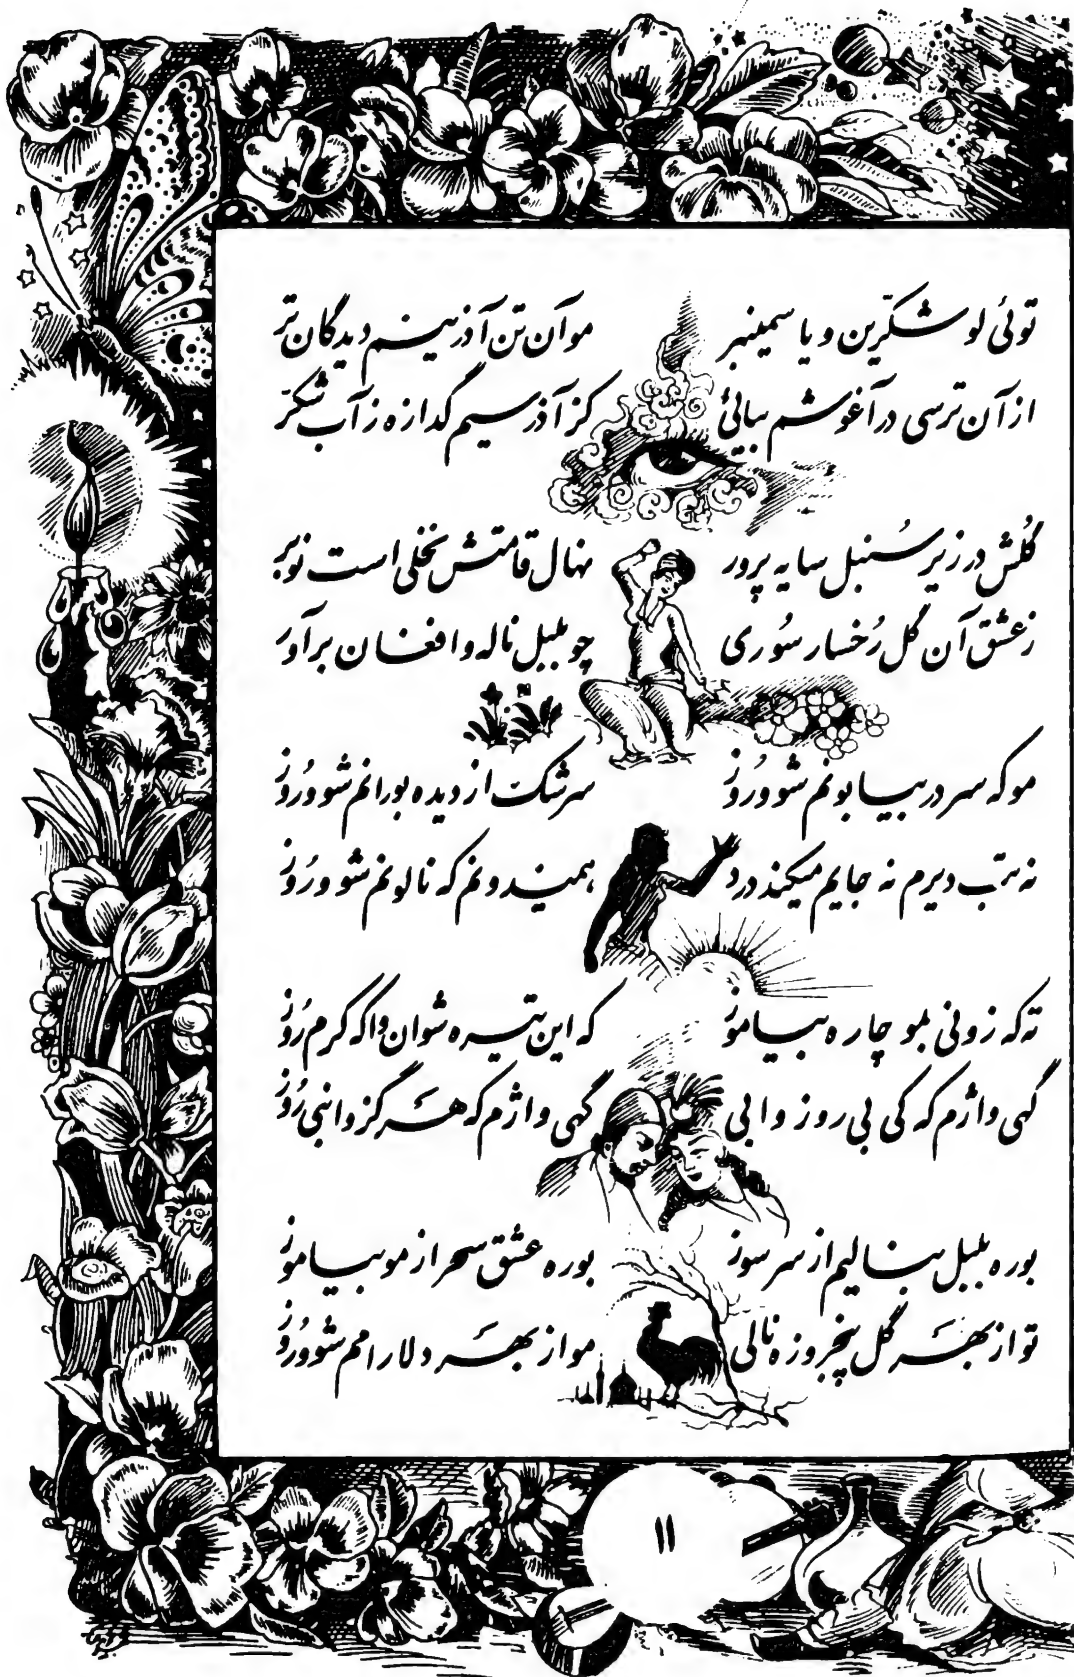 توئی لو شکّرین و یا سمینبر موآن تن آذرینم دیدگان تر
از آن ترسی در آغوشم بیائی کز آذر سیم گدازه ز آب شکّر
گلش در زیر سُنبل سایه پرور نهال قامتش نخلی است نوبر
ز عشق آن گل رُخسار سُوری چو بلبل ناله و افغان برآور
مو که سر در بیابونم شو و رُوز سرشک از دیده بورانم شو و رُوز
نه تب دیرم نه جایم میکند درد همیندونم که نالونم شو و رُوز
ته که زونی بمو چاره بیاموز که این تیره شوان واکه کرم رُوز
گهی واژم که کی بی روز وا بی گهی واژم که هَرگز وا نبی رُوز
بوره بلبل بنالیم از سر سوز بوره عشق سحر از مو بیاموز
تو از بهَر گل پنجروزه نالی مو از بهَر دلارامم شو و رُوز
۱۱